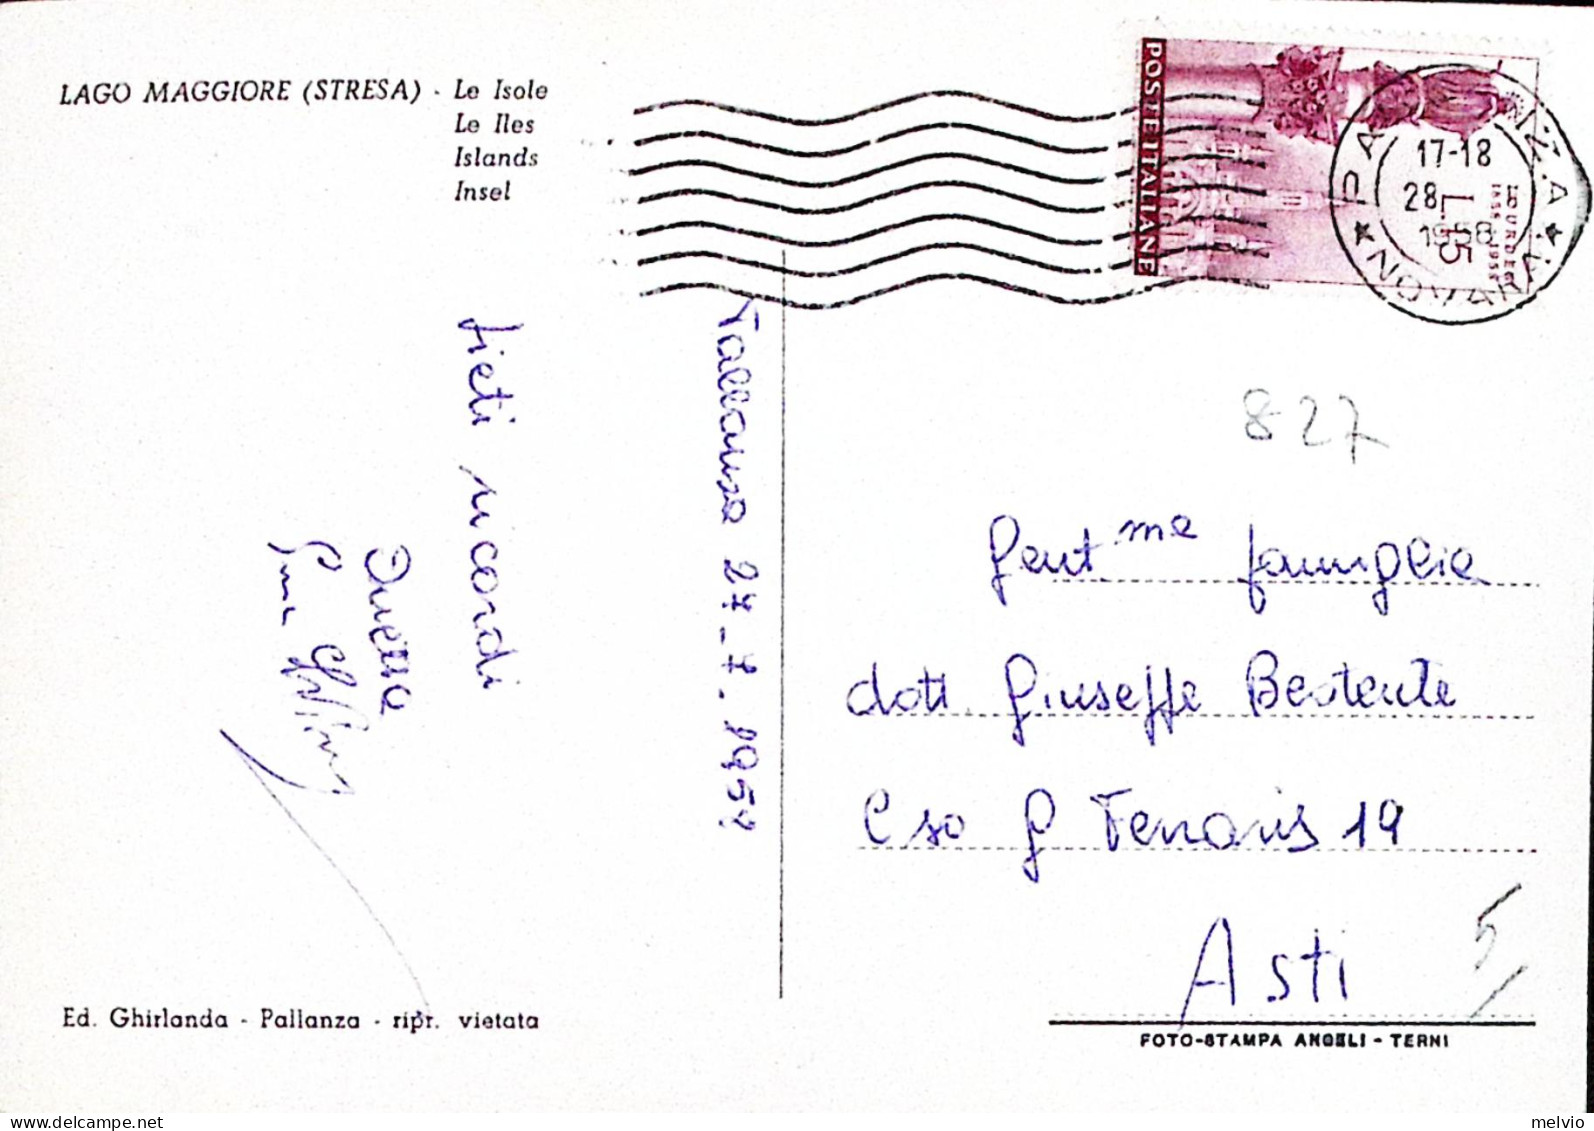 LAGO MAGGIORE (STRESA) - Le Isole
Le Iles
Islands
Insel
POSTE ITALIANE
L. 15
17-18
28
1958
NOVARA
827
Pallanza 27-7-1958
lieti ricordi
Gent.me famiglia
dott. Giuseppe
Cso G Ferraris 19
Asti
5/
Ed. Ghirlanda - Pallanza - ripr. vietata
FOTO-STAMPA ANGELI - TERNI
melvio